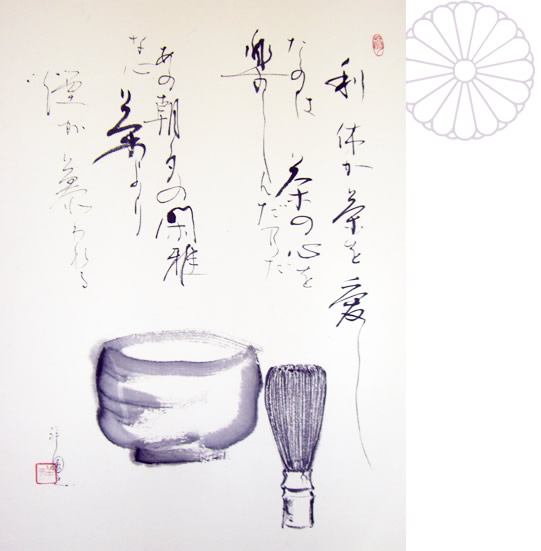 利休が茶を愛し
たのは茶の心を
楽しんだからだ
あの朝夕の閑雅
な心茶より
が慕われる